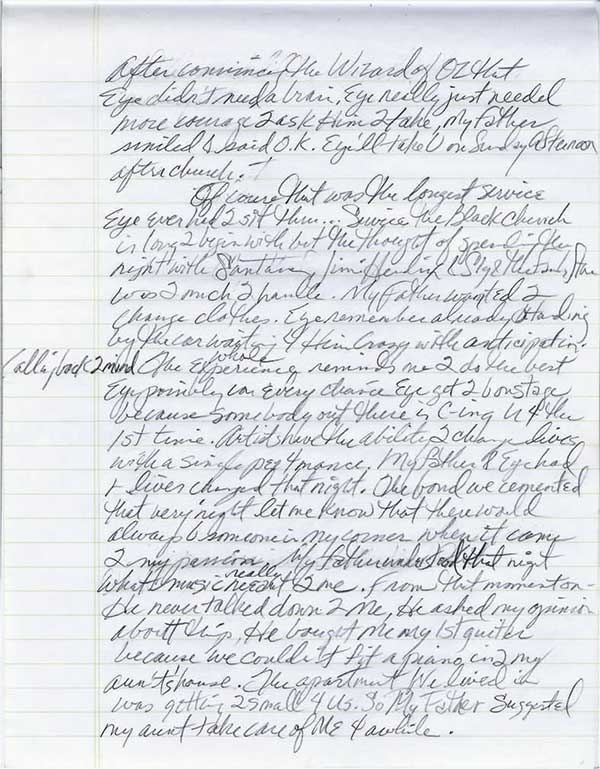 After convincing The Wizard of OZ that
Eye didn't need a brain, Eye really just needed
more courage 2 ask Him 2 take, My Father
smiled & said O.K. Eye'll take U on Sunday afternoon
after church.
Of course that was the longest service
Eye ever had 2 sit thru... Service The Black Church
is long 2 begin with but the thought of spending the
night with Santana, Jimi Hendrix & Sly & the
was 2 much 2 handle. My Father wanted 2
change clothes. Eye remember already standing
by the car waiting 4 Him Crazy with anticipation.
Calling back 2 mind The whole experience reminds me 2 do the best
Eye possibly can every chance Eye get 2 b onstage
because somebody out there is C-ing U 4 the
1st time. Artists have the ability 2 change lives
with a single per4mance. My Father & Eye had
lives changed that night. The bond we cemented
that very night let me know that there would
always b someone in my corner when it came
2 my passion. My Father understood that night
what music really meant 2 me. From that moment on-
He never talked down 2 Me, He asked my opinion
about things, He bought me my 1st guitar
because we couldn't fit a piano in 2 my
aunt's house. The apartment We lived in
was getting 2 small 4 us. So My Father suggested
my aunt take care of Me 4 awhile.